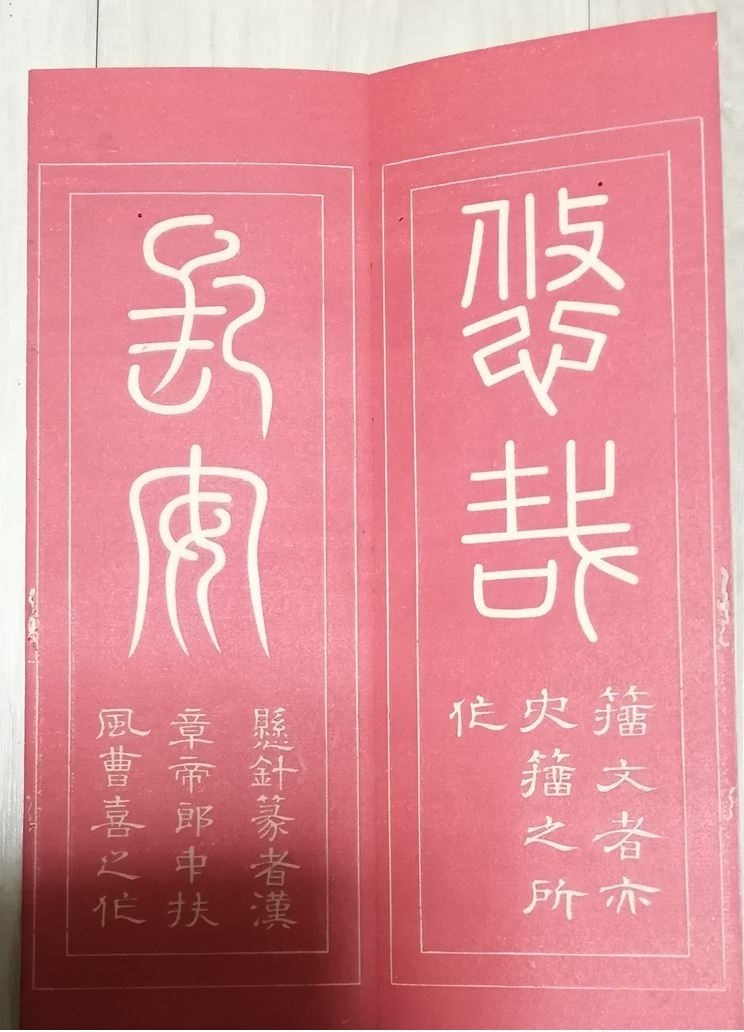 悠哉
籀文者亦
史籀之所
作
安
懸針篆者漢
章帝郎中扶
風曹喜之作